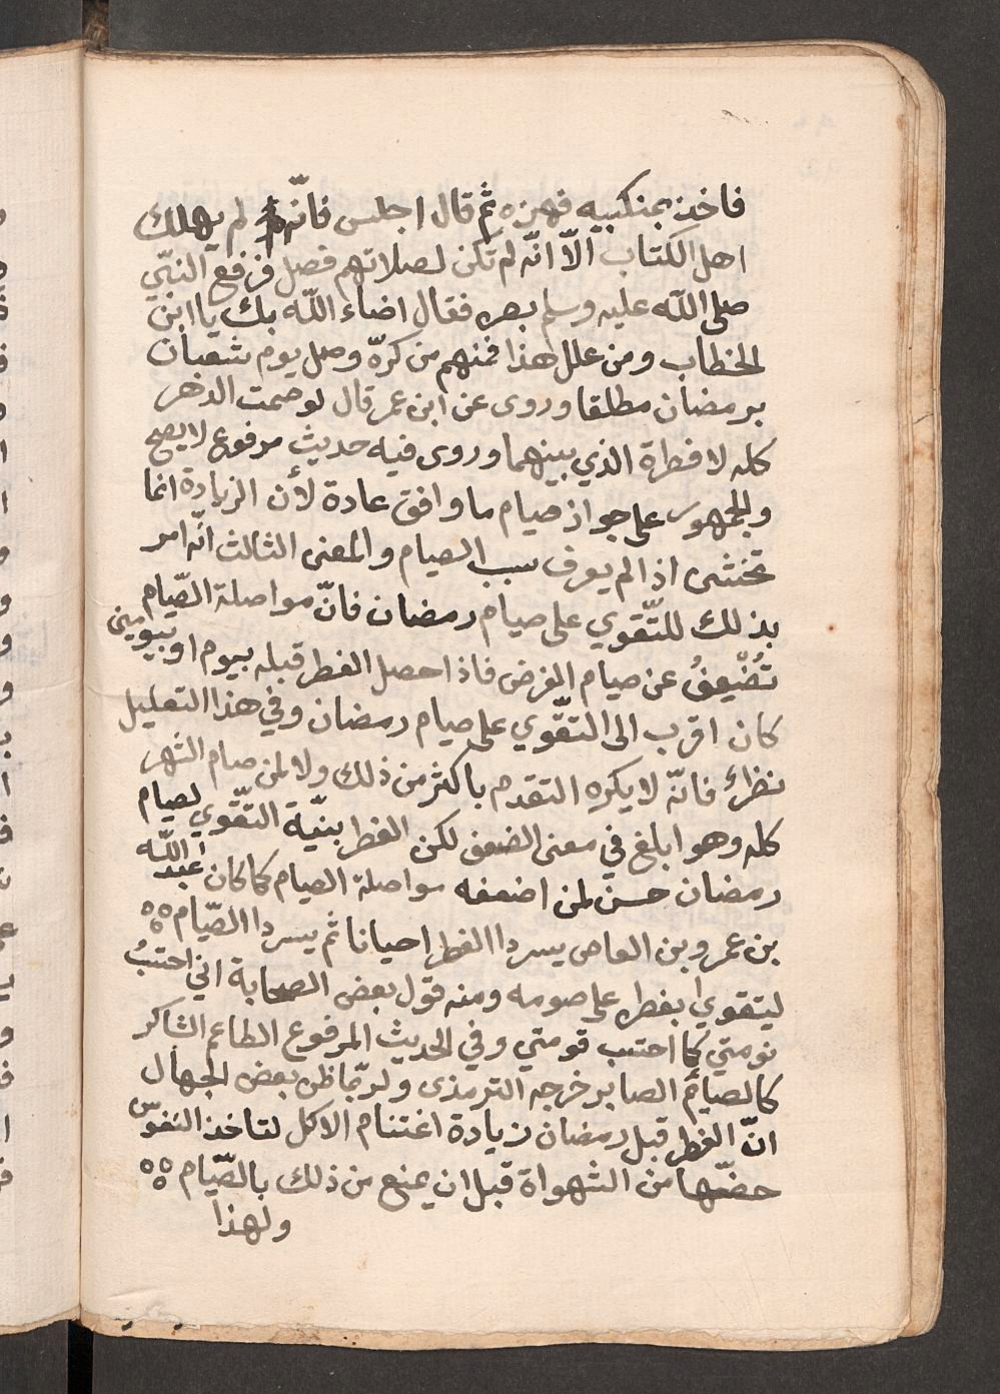 فاخذ بمنكبيه فهزه ثم قال اجلس فانّه لم يهلك
اهل الكتاب الّا انّه لم تكن لصلاتهم فصل فرفع النبّي
صلى اللّه عليه وسلم بصره فقال اضاء اللّه بك يا ابن
الخطاب ومن علل هذا فمنهم من كرّه وصل يوم شعبان
برمضان مطلقا وروى عن ابن عمر قال لو صمت الدهر
كله لا فطرة الذي بينهما وروى فيه حديث مرفوع لا يصح
والجمهور على جواز صيام ما وافق عادة لأن الزيادة انما
تخشى اذا لم يعرف سبب الصيام والمعنى الثالث انّه امر
بذلك للتّقوي على صيام رمضان فانّ مواصلة الصّيام
تُضْيعفُ عن صيام الفرض فاذا احصل الفطر قبله بيوم او بيومين
كان اقرب الى التقّوي على صيام رمضان وفي هذا التعليل
نظرٌ فانّه لا يكره التقدم باكثر من ذلك ولا لمن صام الشهر
كله وهو ابلغ في معنى الضعف لكن الفطر بنيّة التقّوي لصيام
رمضان حسن لمن اضعفه مواصلة الصيام كما كان عبد اللّه
بن عمرو بن العاص يسرد الفطر احيانا ثم يسرد الصّيام
ليتقوي بفطره على صومه ومنه قول بعض الصحابة اني احتسبُ
نومتي كما احتسب قومتي وفي الحديث المرفوع الطاعم الشاكر
كالصيائم الصابر خرجه الترمذى ولربّما ظن بعض الجهال
انّ الفطر قبل رمضان زيادة اغتنام الاكل لتاخذ النفوسّ
حضّها من الشهواة قبل ان يمنع من ذلك بالصّيام
ولهذا